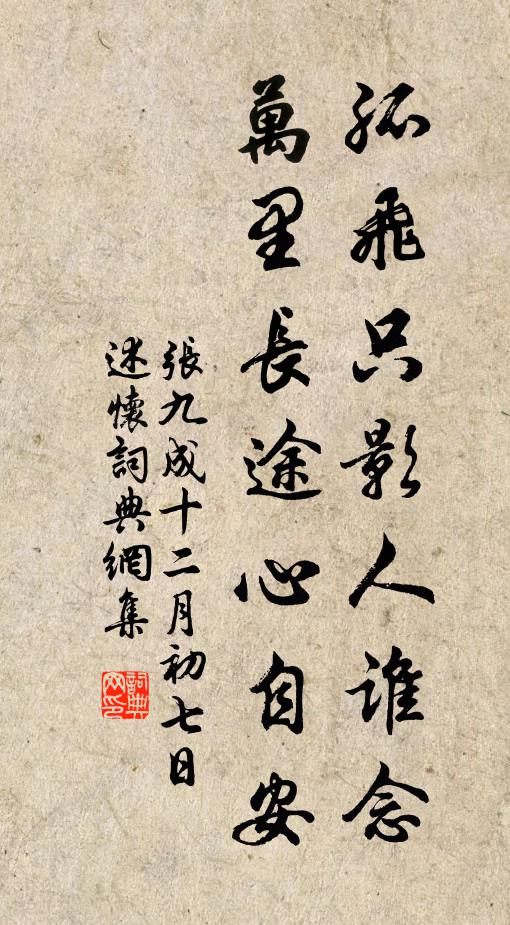 孤飛只影人誰念
萬里長途心自安
張九成十二月初七日
述懷詞典網集
詞典
网印